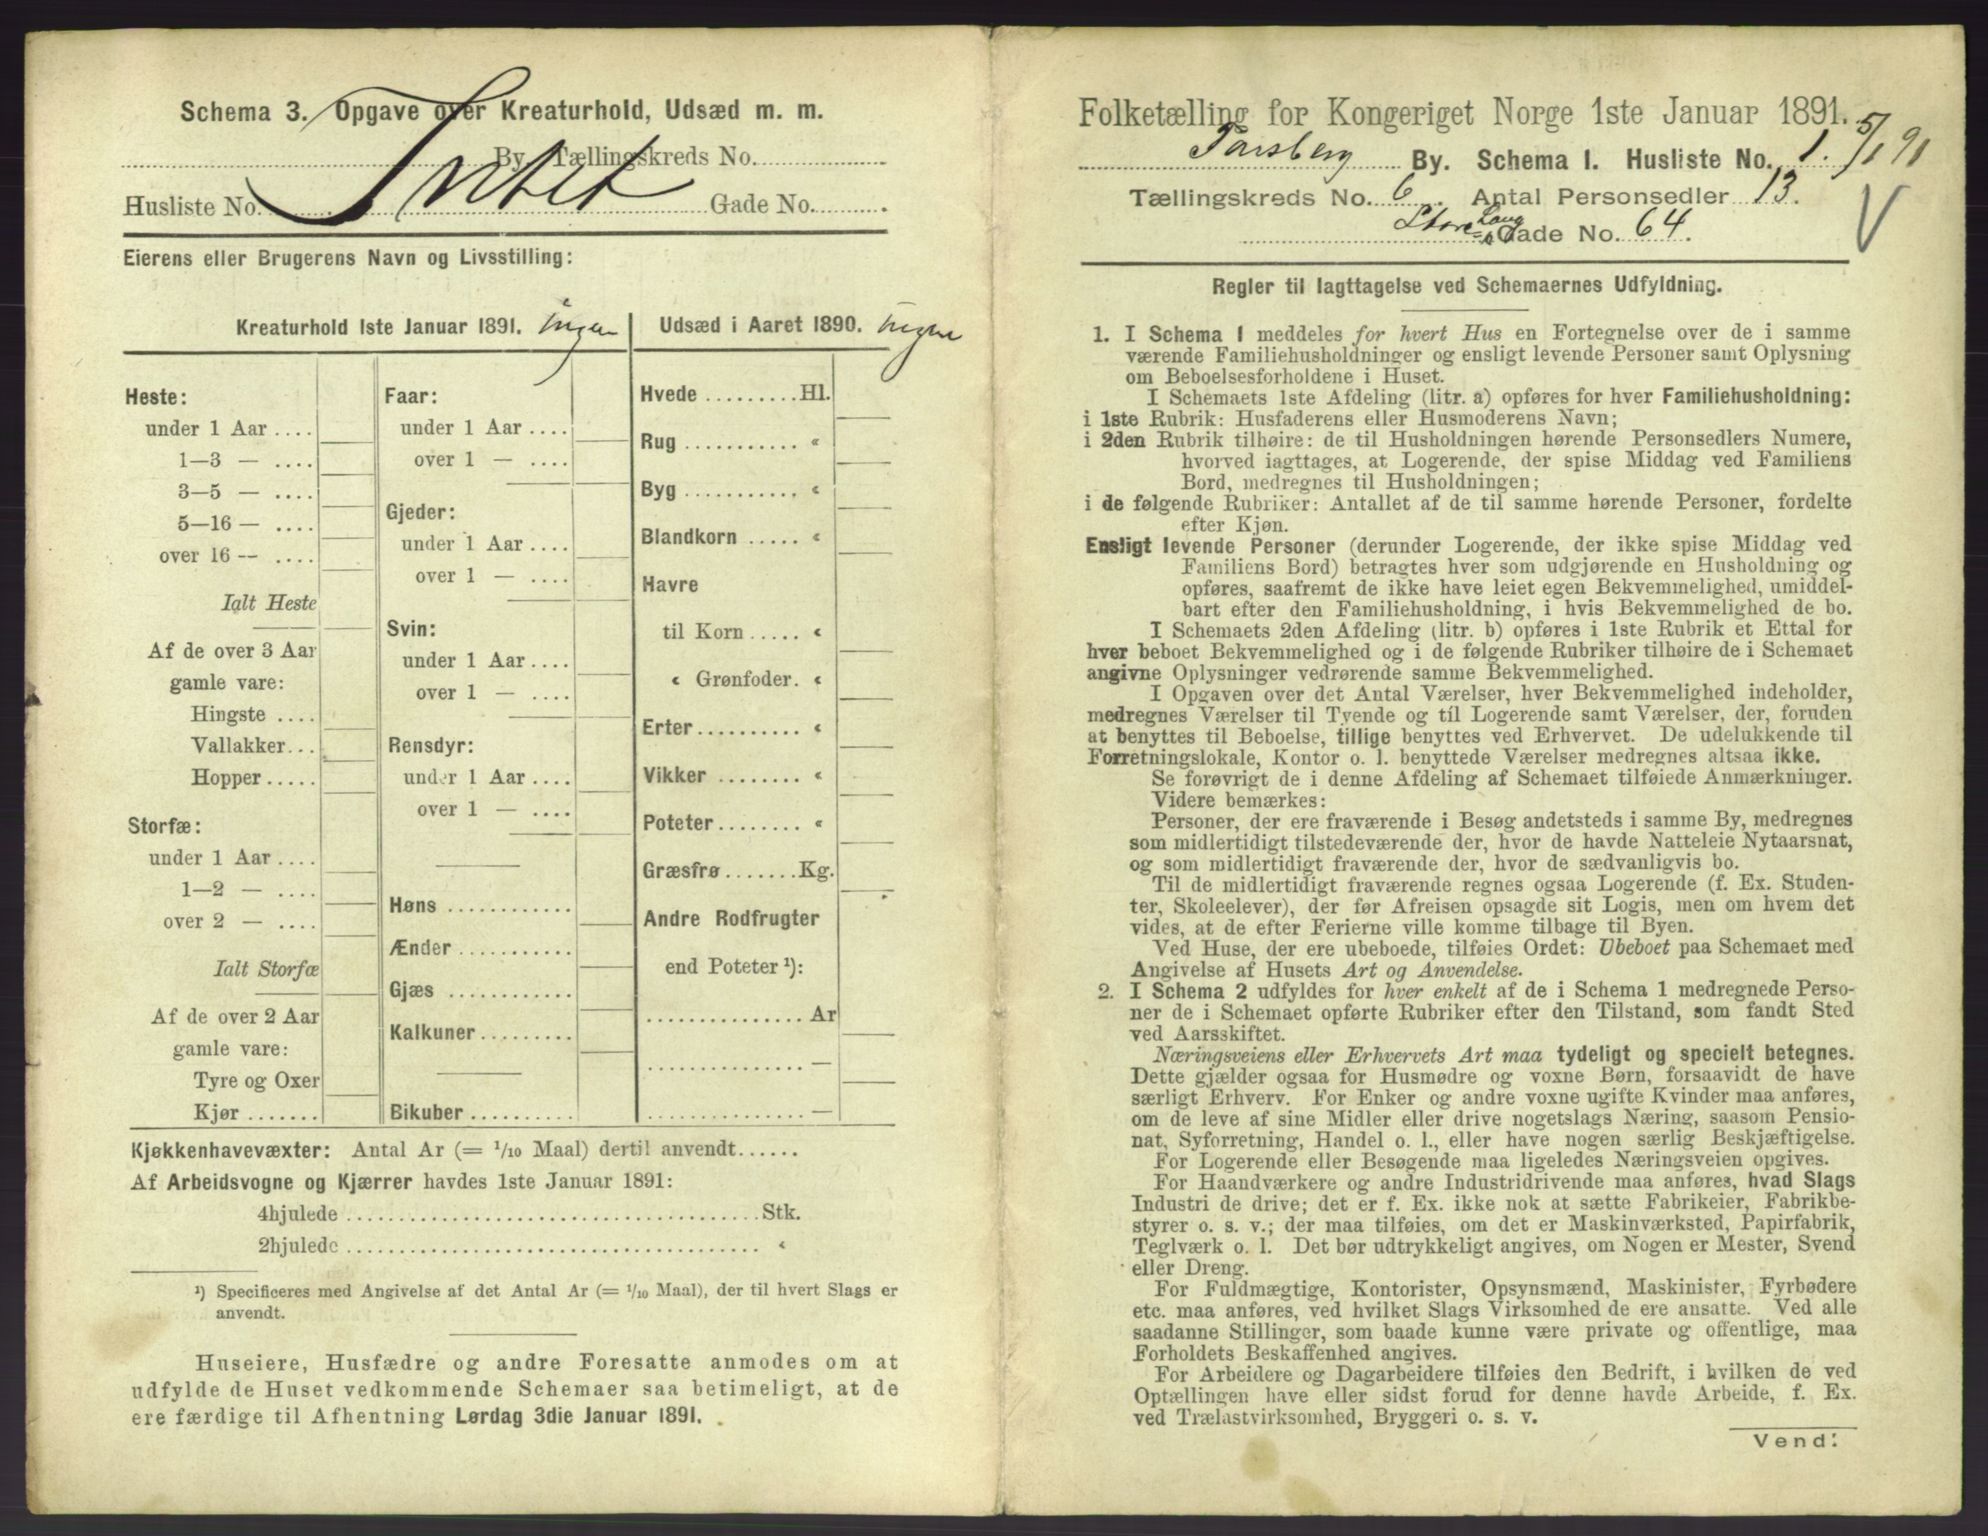 Schema 3. Opgave over Kreaturhold, Udsæd m. m.
By. Tællingskreds No.
Intet
Husliste No. Gade No.
Eierens eller Brugerens Navn og Livsstilling:
Kreaturhold 1ste Januar 1891. Ingen
Heste:
under 1 Aar
1—3 —
3—5 —
5—16 —
over 16 —
Ialt Heste
Af de over 3 Aar
gamle vare:
Hingste
Vallakker
Hopper
Storfæ:
under 1 Aar
1—2 —
over 2 —
Ialt Storfæ
Af de over 2 Aar
gamle vare:
Tyre og Oxer
Kjør
Faar:
under 1 Aar
over 1 —
Gjeder:
under 1 Aar
over 1 —
Svin:
under 1 Aar
over 1 —
Rensdyr:
under 1 Aar
over 1 —
Høns
Ænder
Gjæs
Kalkuner
Bikuber
Udsæd i Aaret 1890. Ingen
Hvede Hl.
Rug «
Byg «
Blandkorn «
Havre
til Korn «
« Grønfoder. «
Erter «
Vikker «
Poteter «
Græsfrø Kg.
Andre Rodfrugter
end Poteter ¹):
Ar
—
—
Kjøkkenhavevæxter: Antal Ar (= 1/10 Maal) dertil anvendt
Af Arbeidsvogne og Kjærrer havdes 1ste Januar 1891:
4hjulede Stk.
2hjulede «
¹) Specificeres med Angivelse af det Antal Ar (= 1/10 Maal), der til hvert Slags er
anvendt.
Huseiere, Husfædre og andre Foresatte anmodes om at
udfylde de Huset vedkommende Schemaer saa betimeligt, at de
ere færdige til Afhentning Lørdag 3die Januar 1891.
Folketælling for Kongeriget Norge 1ste Januar 1891.
5/1 91
Tønsberg By. Schema 1. Husliste No. 1.
Tællingskreds No. 6. Antal Personsedler 13.
Store Lang Gade No. 64.
Regler til Iagttagelse ved Schemaernes Udfyldning.
1. I Schema 1 meddeles for hvert Hus en Fortegnelse over de i samme
værende Familiehusholdninger og ensligt levende Personer samt Oplysning
om Beboelsesforholdene i Huset.
I Schemaets 1ste Afdeling (litr. a) opføres for hver Familiehusholdning:
i 1ste Rubrik: Husfaderens eller Husmoderens Navn;
i 2den Rubrik tilhøire: de til Husholdningen hørende Personsedlers Numere,
hvorved iagttages, at Logerende, der spise Middag ved Familiens
Bord, medregnes til Husholdningen;
i de følgende Rubriker: Antallet af de til samme hørende Personer, fordelte
efter Kjøn.
Ensligt levende Personer (derunder Logerende, der ikke spise Middag ved
Familiens Bord) betragtes hver som udgjørende en Husholdning og
opføres, saafremt de ikke have leiet egen Bekvemmelighed, umiddel-
bart efter den Familiehusholdning, i hvis Bekvemmelighed de bo.
I Schemaets 2den Afdeling (litr. b) opføres i 1ste Rubrik et Ettal for
hver beboet Bekvemmelighed og i de følgende Rubriker tilhøire de i Schemaet
angivne Oplysninger vedrørende samme Bekvemmelighed.
I Opgaven over det Antal Værelser, hver Bekvemmelighed indeholder,
medregnes Værelser til Tyende og til Logerende samt Værelser, der, foruden
at benyttes til Beboelse, tillige benyttes ved Erhvervet. De udelukkende til
Forretningslokale, Kontor o. l. benyttede Værelser medregnes altsaa ikke.
Se forøvrigt de i denne Afdeling af Schemaet tilføiede Anmærkninger.
Videre bemærkes:
Personer, der ere fraværende i Besøg andetsteds i samme By, medregnes
som midlertidigt tilstedeværende der, hvor de havde Natteleie Nytaarsnat,
og som midlertidigt fraværende der, hvor de sædvanligvis bo.
Til de midlertidigt fraværende regnes ogsaa Logerende (f. Ex. Studen-
ter, Skoleelever), der før Afreisen opsagde sit Logis, men om hvem det
vides, at de efter Ferierne ville komme tilbage til Byen.
Ved Huse, der ere ubeboede, tilføies Ordet: Ubeboet paa Schemaet med
Angivelse af Husets Art og Anvendelse.
2. I Schema 2 udfyldes for hver enkelt af de i Schema 1 medregnede Perso-
ner de i Schemaet opførte Rubriker efter den Tilstand, som fandt Sted
ved Aarsskiftet.
Næringsveiens eller Erhvervets Art maa tydeligt og specielt betegnes.
Dette gjælder ogsaa for Husmødre og voxne Børn, forsaavidt de have
særligt Erhverv. For Enker og andre voxne ugifte Kvinder maa anføres,
om de leve af sine Midler eller drive nogetslags Næring, saasom Pensio-
nat, Syforretning, Handel o. l., eller have nogen særlig Beskjæftigelse.
For Logerende eller Besøgende maa ligeledes Næringsveien opgives.
For Haandværkere og andre Industridrivende maa anføres, hvad Slags
Industri de drive; det er f. Ex. ikke nok at sætte Fabrikeier, Fabrikbe-
styrer o. s. v.; der maa tilføies, om det er Maskinværksted, Papirfabrik,
Teglværk o. l. Det bør udtrykkeligt angives, om Nogen er Mester, Svend
eller Dreng.
For Fuldmægtige, Kontorister, Opsynsmænd, Maskinister, Fyrbødere
etc. maa anføres, ved hvilket Slags Virksomhed de ere ansatte. Ved alle
saadanne Stillinger, som baade kunne være private og offentlige, maa
Forholdets Beskaffenhed angives.
For Arbeidere og Dagarbeidere tilføies den Bedrift, i hvilken de ved
Optællingen have eller sidst forud for denne havde Arbeide, f. Ex.
ved Trælastvirksomhed, Bryggeri o. s. v.
Vend!